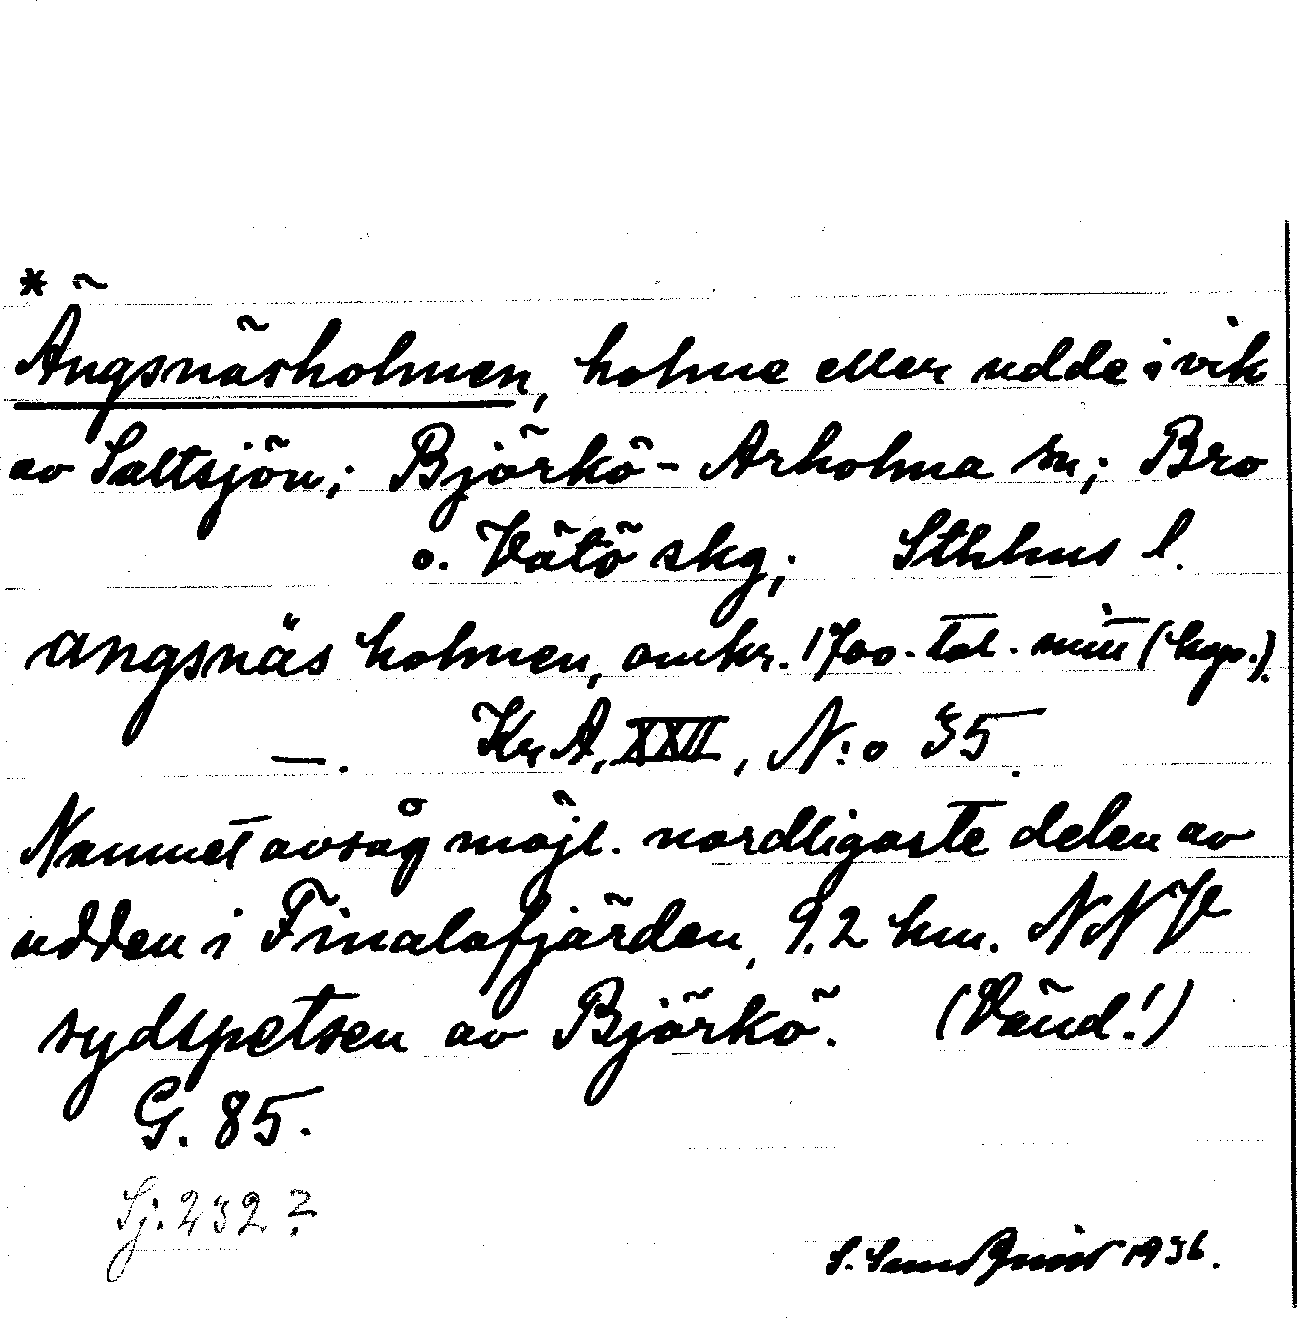 * Ängsnäsholmen, holme eller udde i vik
av Saltsjön; Björkö-Arholma sn; Bro
o. Vätö skg; Sthlms l.
angsnäs holmen, omkr. 1700-tal. mitt (kop.)
—. Kr A, XXII, N:o 35.
Namnet avsåg möjl. nordligaste delen av
udden i Finalafjärden, 9.2 km. NNV
sydspetsen av Björkö. (Vänd!)
G. 85.
Sj. 232 ?
S. 1936.